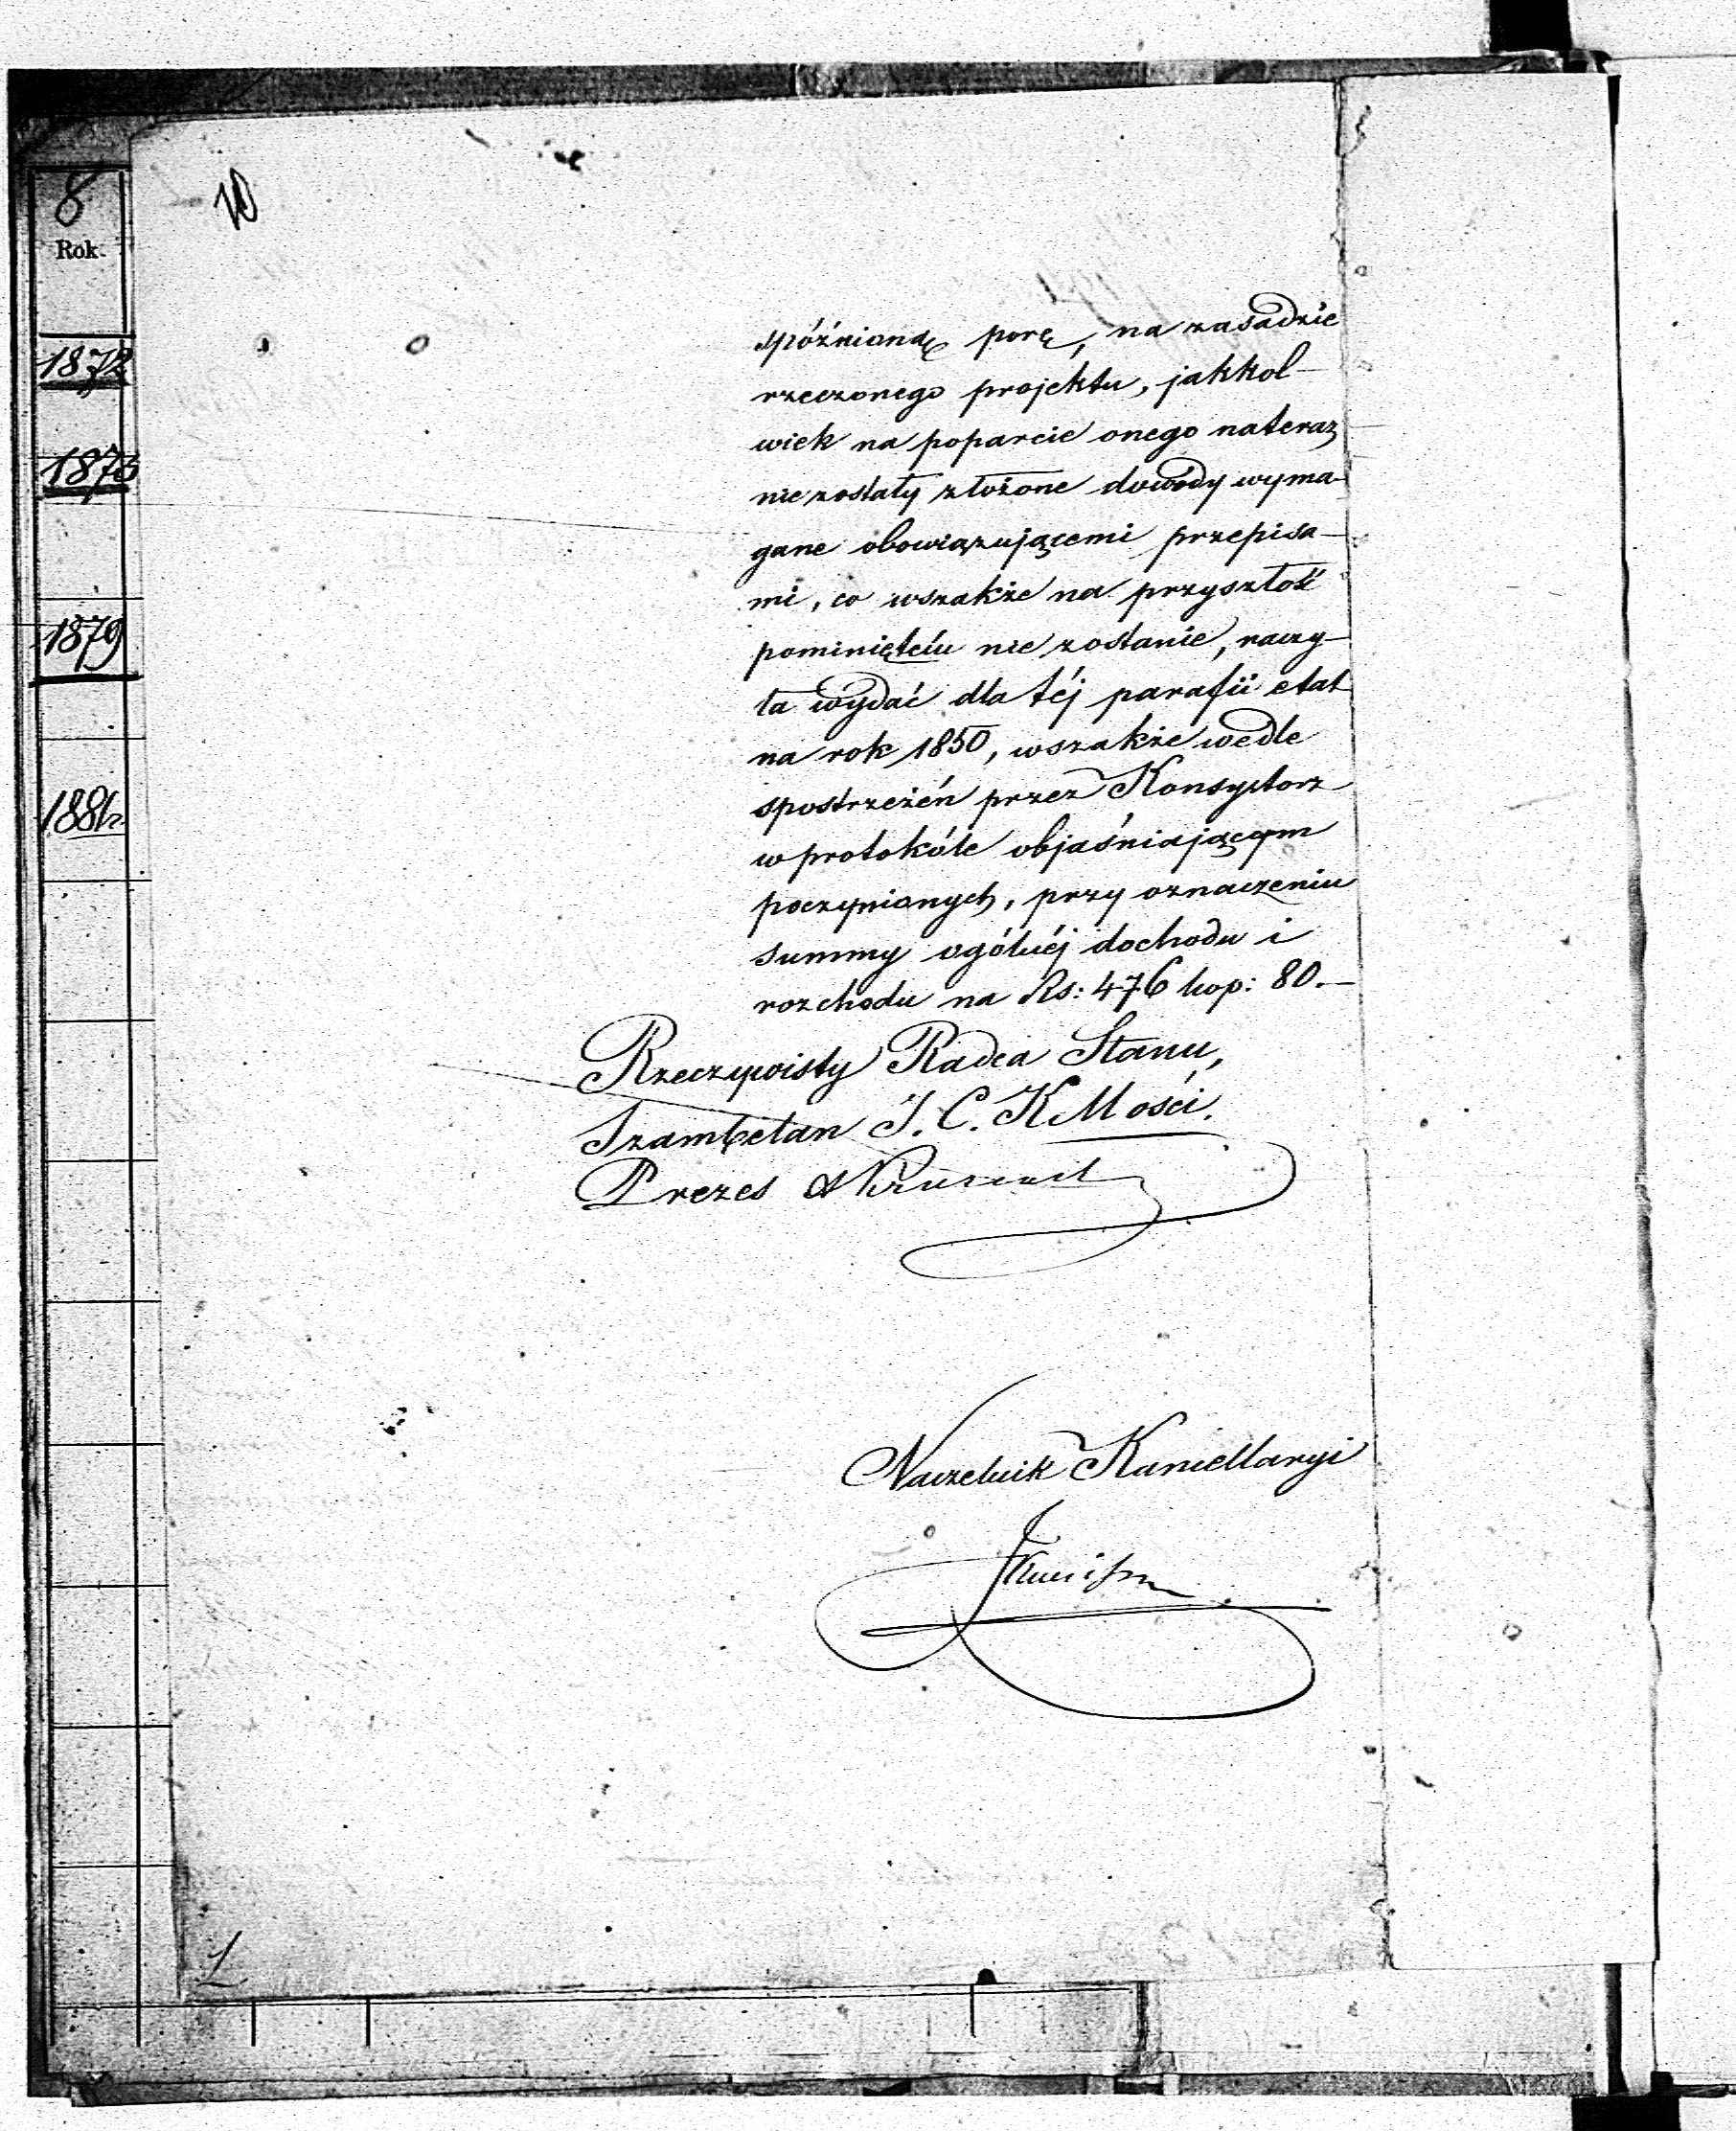 8
Rok.
1872
1873
1879
1881r.
10
spóźnioną porę, na zasadzie
rzeczonego projektu, jakkol-
wiek na poparcie onego nateraz
nie zostały złożone dowody wyma-
gane obowiązującemi przepisa-
mi, co wszakże na przyszłość
pominiętém nie zostanie, raczy-
ła wydać dla téj parafii etat
na rok 1850, wszakże wedle
spostrzeżeń przez Konsystorz
w protokóle objaśniającym
poczynionych, przy oznaczeniu
summy ogólnéj dochodu i
rozchodu na Rs: 476 kop: 80.—
Rzeczywisty Radca Stanu,
Szambelan J. C. K Mości.
Prezes
Naczelnik Kancellaryi
1